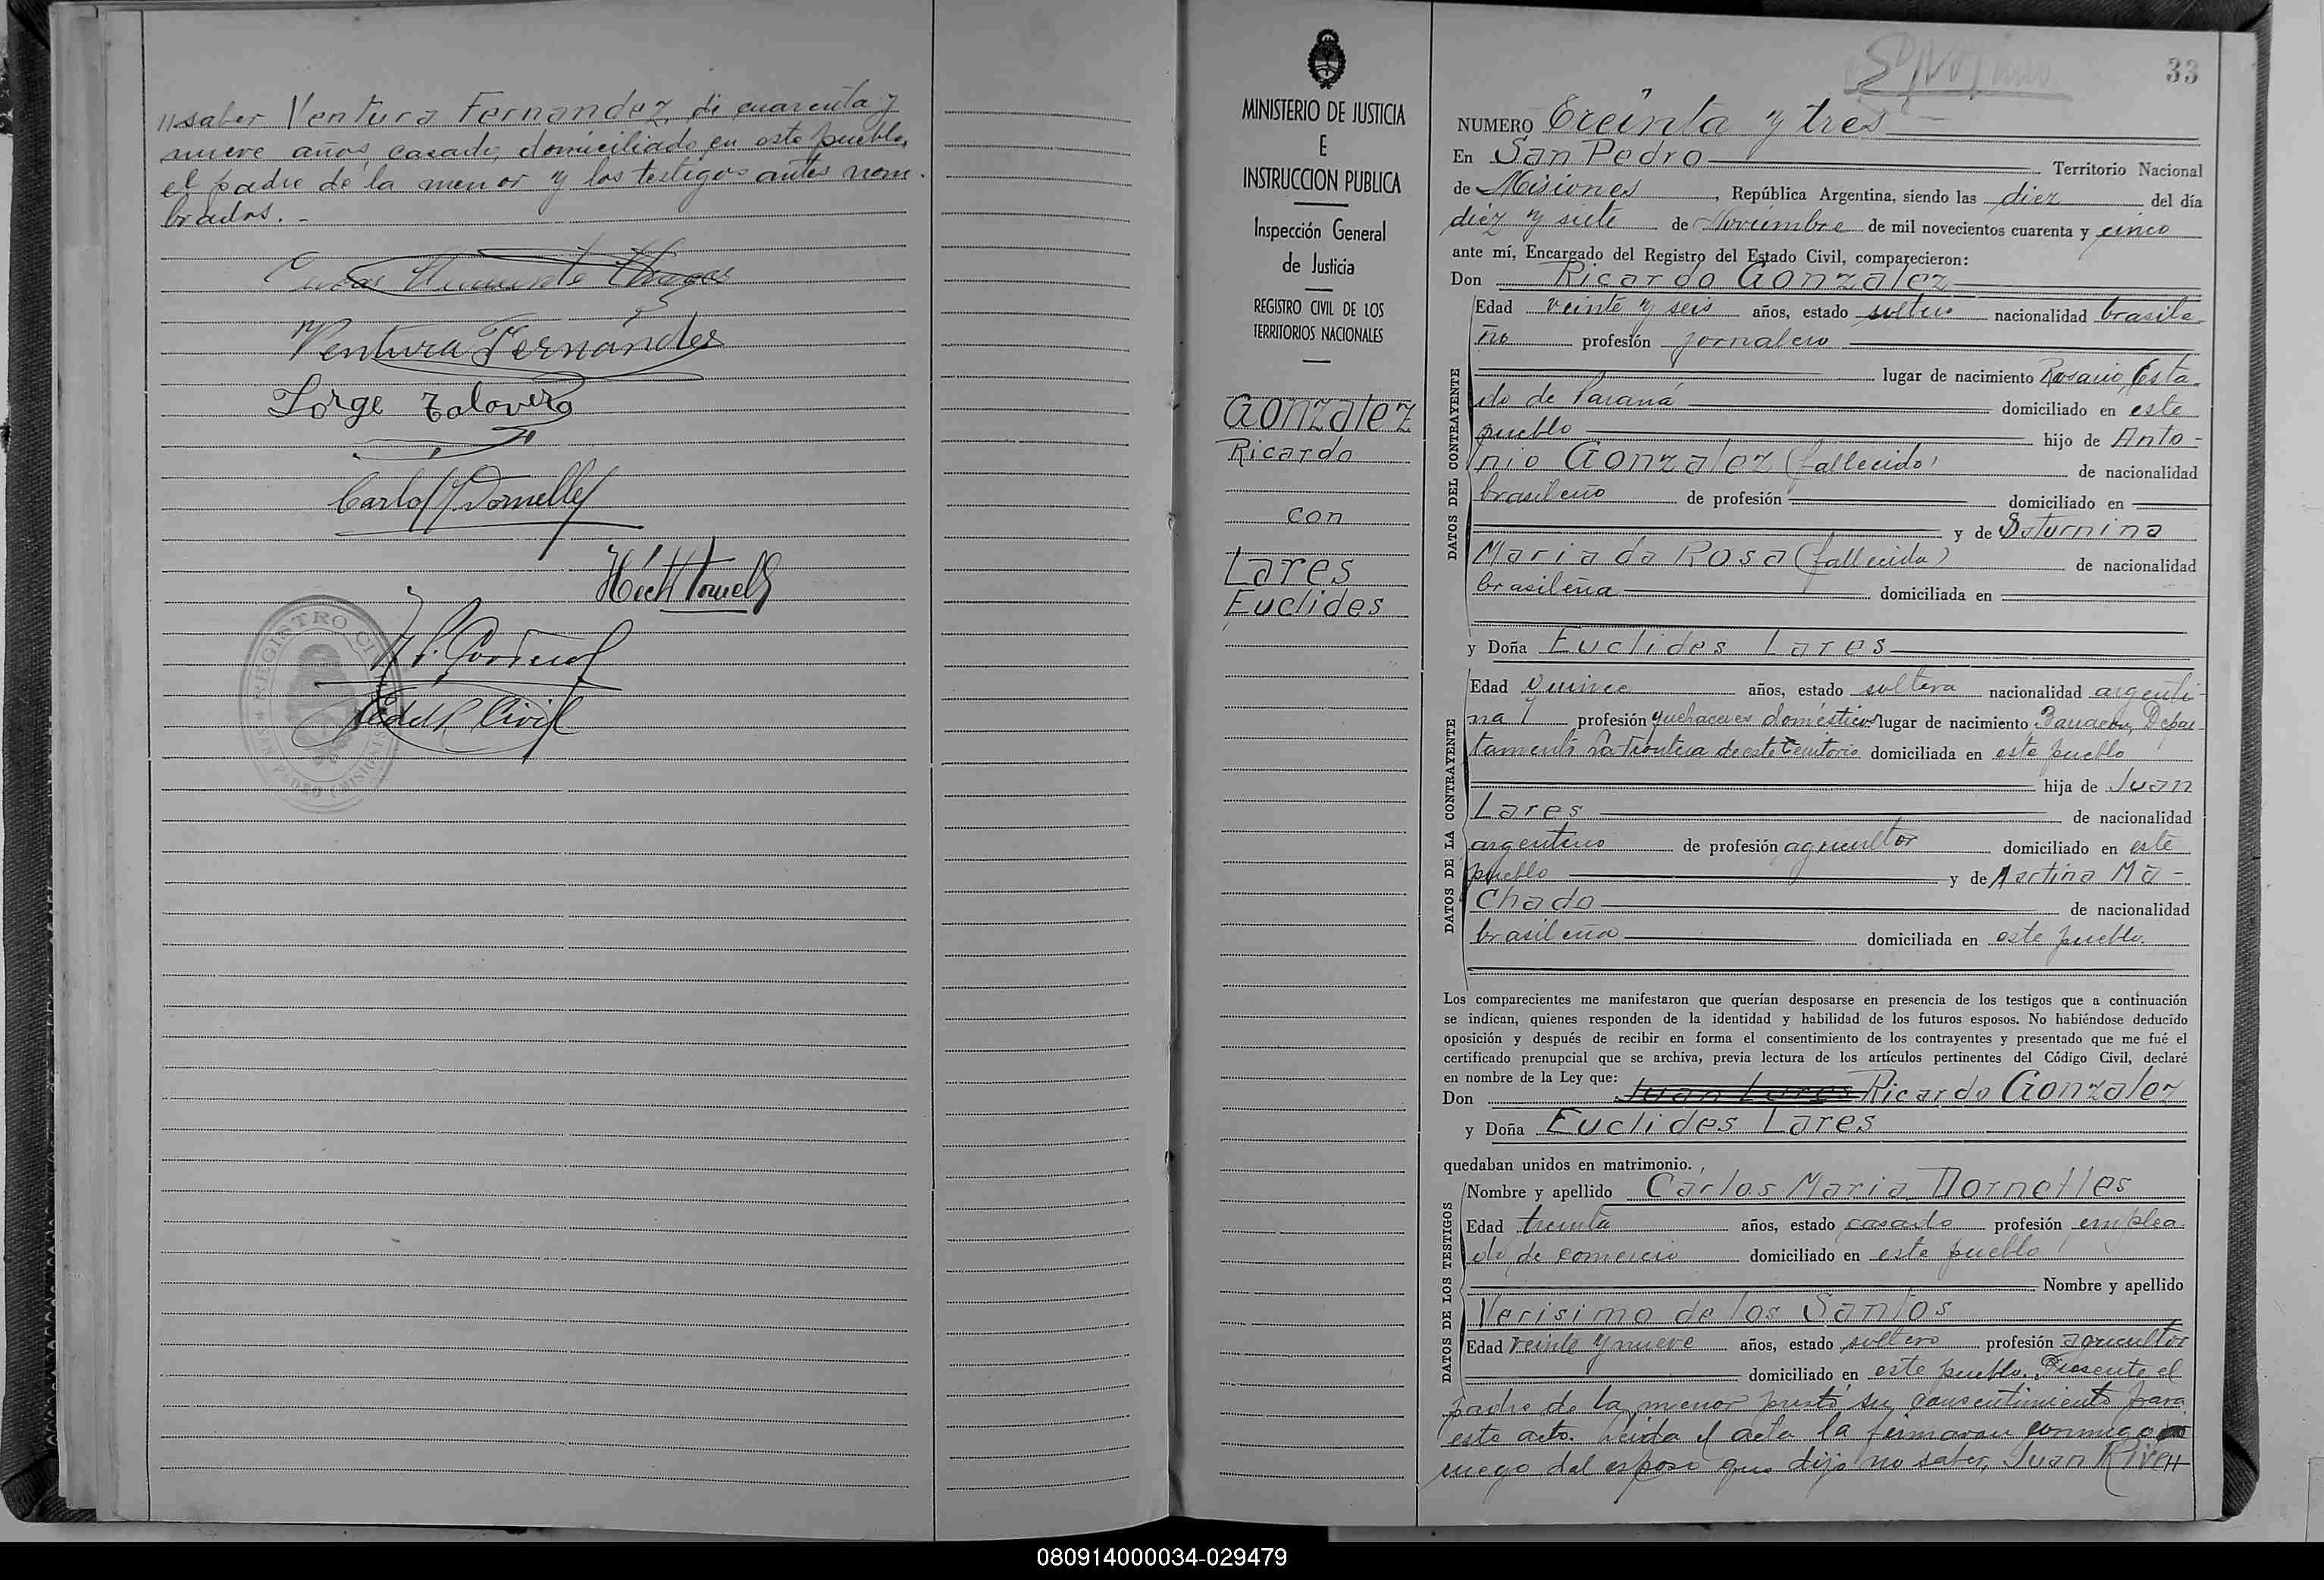 //saber Ventura Fernandez, de cuarenta y
nueve años, casado, domiciliado en este pueblo,
el padre de la menor y los testigos antes nom-
brados.-
Ventura Fernandes
Jorge Talavera
REGISTRO CIVIL
33
MINISTERIO DE JUSTICIA
E
INSTRUCCION PUBLICA
Inspección General
de Justicia
REGISTRO CIVIL DE LOS
TERRITORIOS NACIONALES
Gonzalez
Ricardo
con
Lares
Euclides
NUMERO Treinta y tres
En San Pedro Territorio Nacional
de Misiones, República Argentina, siendo las diez del día
diez y siete de Noviembre de mil novecientos cuarenta y cinco
ante mí, Encargado del Registro del Estado Civil, comparecieron:
Don Ricardo Gonzalez
DATOS DEL CONTRAYENTE
Edad veinte y seis años, estado soltero nacionalidad brasile-
ño profesión jornalero
lugar de nacimiento Rosario, Esta-
do de Paraná domiciliado en este
pueblo hijo de Anto-
nio Gonzalez (fallecido) de nacionalidad
brasileño de profesión domiciliado en
y de Saturnina
Maria da Rosa (fallecida) de nacionalidad
brasileña domiciliada en
y Doña Euclides Lares
DATOS DE LA CONTRAYENTE
Edad quince años, estado soltera nacionalidad argenti-
na profesión quehaceres domésticos lugar de nacimiento Barracon, Depar-
tamento La Frontera de este territorio domiciliada en este pueblo
hija de Juan
Lares de nacionalidad
argentino de profesión agricultor domiciliado en este
pueblo y de Martina Ma-
chado de nacionalidad
brasileña domiciliada en este pueblo.
Los comparecientes me manifestaron que querían desposarse en presencia de los testigos que a continuación
se indican, quienes responden de la identidad y habilidad de los futuros esposos. No habiéndose deducido
oposición y después de recibir en forma el consentimiento de los contrayentes y presentado que me fué el
certificado prenupcial que se archiva, previa lectura de los artículos pertinentes del Código Civil, declaré
en nombre de la Ley que:
Don Juan Lares Ricardo Gonzalez
y Doña Euclides Lares
quedaban unidos en matrimonio.
DATOS DE LOS TESTIGOS
Nombre y apellido Carlos Maria Dornelles
Edad treinta años, estado casado profesión emplea-
do de comercio domiciliado en este pueblo
Nombre y apellido
Verisimo de los Santos
Edad veinte y nueve años, estado soltero profesión agricultor
domiciliado en este pueblo. Presente el
padre de la menor prestó su consentimiento para
este acto. Leida el acta la firmaron conmigo
ruego del esposo que dijo no saber, Juan River//
080914000034-029479